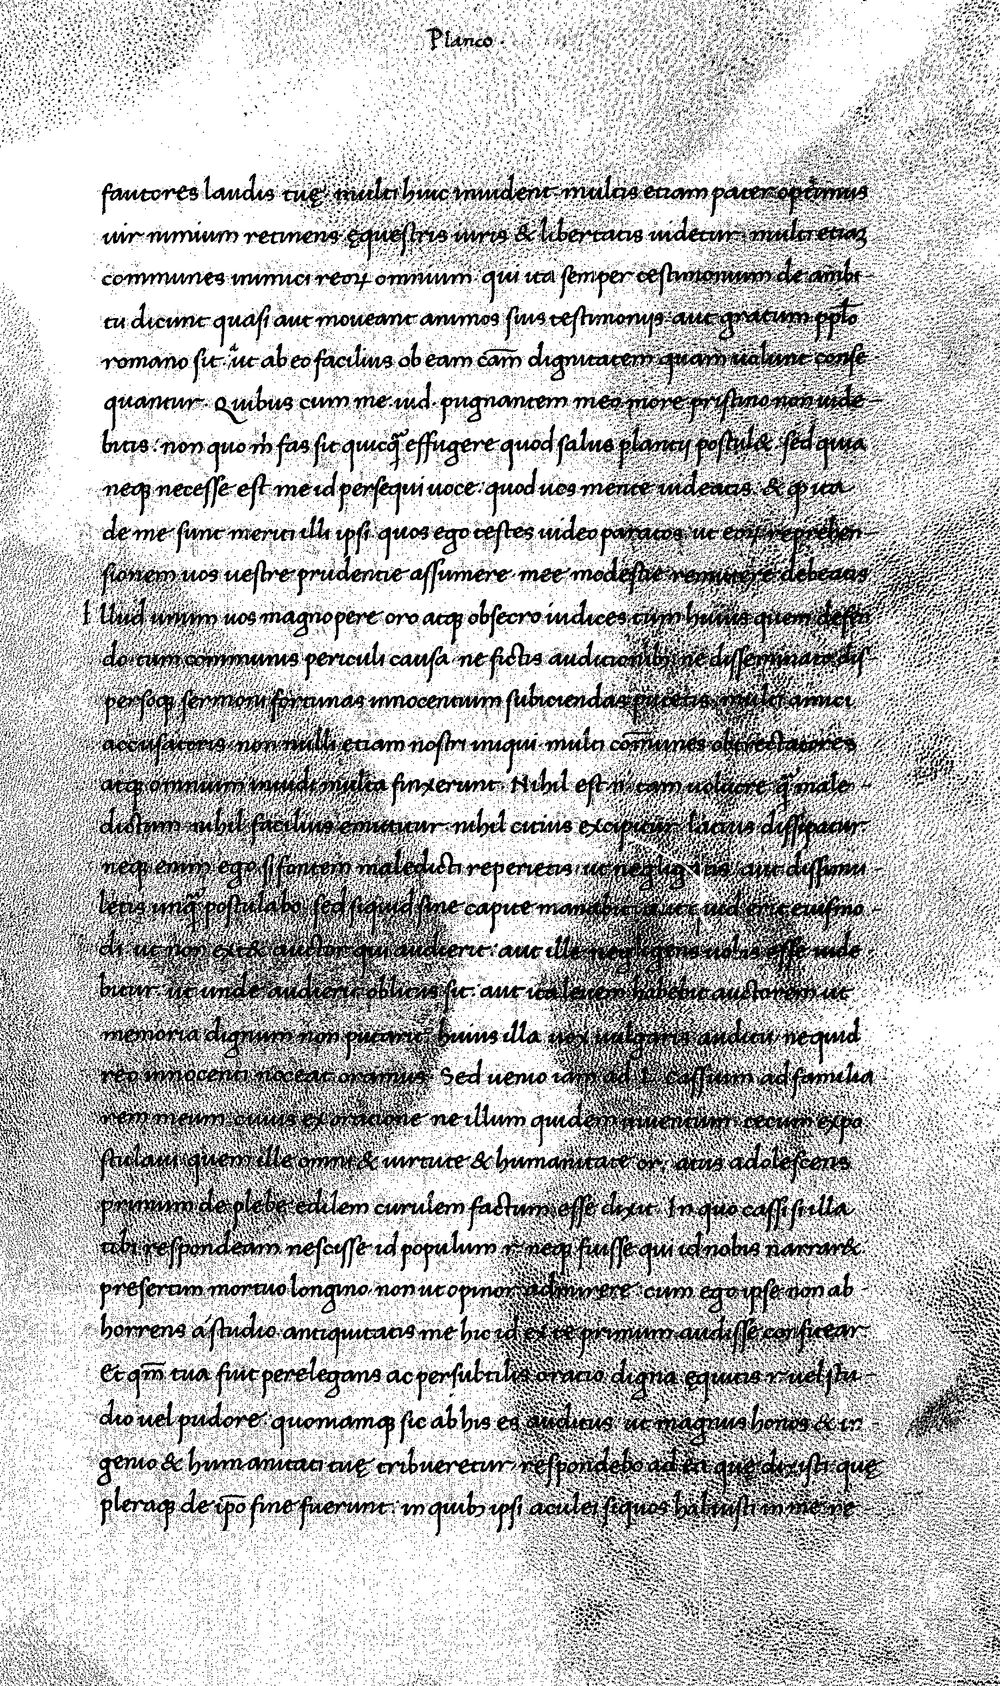 Planco.
fautores laudis tuę. multi huic inuident. multis etiam pater optimus
uir nimium retinens ęquestris iuris & libertatis uidetur. multi etiaʒ
communes inimici reoꝝ omnium. qui ita semper testimonium de ambi-
tu dicunt quasi aut moueant animos suis testimonijs. aut gratum pp̄lo
romano sit. ut ab eo facilius ob eam cām̄ dignitatem quam uolunt conse
quantur. Quibus cum me. iud. pugnantem meo more pristino non uide-
bitis. non quo m̄ fas sit quicq̄ effugere quod salus plancij postul&. sed quia
neqꝫ necesse est me id persequi uoce. quod uos mente uideatis. & ꝙ ita
de me sunt meriti illi ipsi. quos ego testes uideo paratos. ut eoꝝ reprehen-
sionem uos uestre prudentie assumere. mee modestie remittere debeatis
Illud unum uos magnopere oro atqꝫ obsecro iudices cum huius quem defen
do. tum communis periculi causa. ne fictis auditionibꝫ. ne disseminato dis-
persoqꝫ sermoni fortunas innocentium subiciendas putetis. multi amici
accusatoris. non nulli etiam nostri iniqui. multi com̄unes obtrectatores
atqꝫ omnium inuidi multa finxerunt. Nihil est n̄. tam uolucre q̄ male-
dictum. nihil facilius emittitur. nihil citius excipitur. latius dissipatur.
neqꝫ enim ego si fontem maledicti reperietis. ut negligatis. aut dissimu-
letis unq̄ postulabo. sed siquid sine capite manabit. aut quid erit eiusmo-
di. ut non ext& auctor qui audierit. aut ille negligens uobis esse uide
bitur. ut unde audierit oblitus sit. aut ita leuem habebit auctorem ut
memoria dignum non putarit. huius illa uox uulgaris audiui. ne quid
reo innocenti noceat oramus. Sed uenio iam ad L. Cassium ad familia
rem meum. cuius ex oratione ne illum quidem iuuentium. tecum expo
stulaui. quem ille omni & uirtute & humanitate ornatus adolescens
primum de plebe edilem curulem factum esse dixit. In quo cassi si illa
tibi respondeam nescisse id populum r. neqꝫ fuisse qui id nobis narrar&.
presertim mortuo longino. non ut opinor admirere. cum ego ipse non ab
horrens a studio antiquitatis me hic id ex te primum audisse confitear.
Et qm̄ tua fuit perelegans ac persubtilis oratio. digna ęquitis r. uel stu-
dio uel pudore. quoniamqꝫ sic ab his es auditus. ut magnus honos & in-
genio & humanitati tuę tribueretur. respondebo ad ea quę dixisti. quę
pleraqꝫ de ip̄o sine fuerunt. in quibꝫ ipsi aculei siquos habuisti in me ne